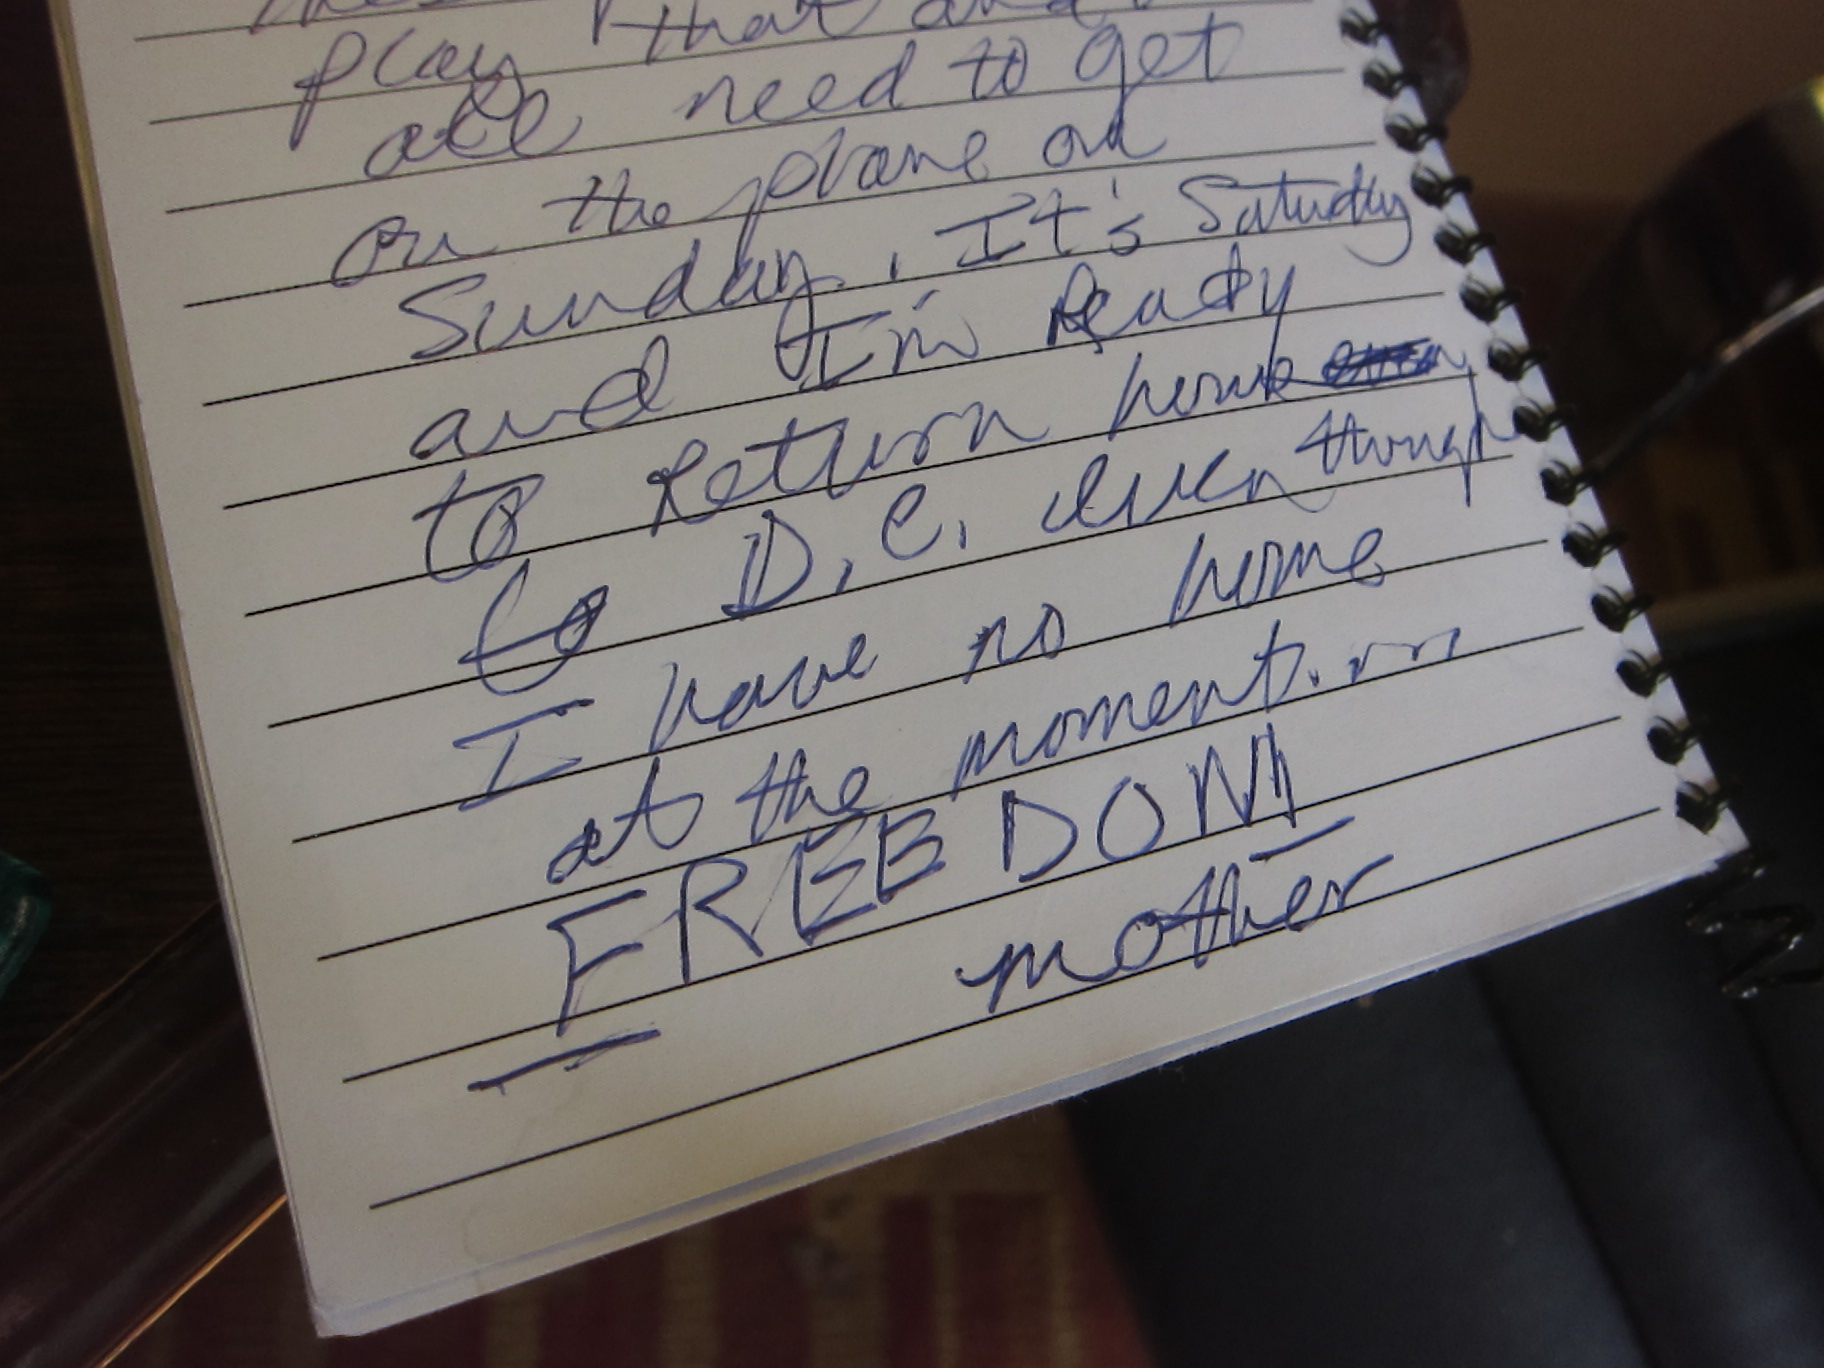 play that and
all need to get
on the phone on
Sunday. It's Saturday
and I'm Ready
to Return home
to D.C. even though
I have no home
at the moment.
FREEDOM
mother